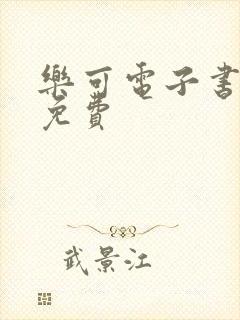 樂可電子書
免費
武景江